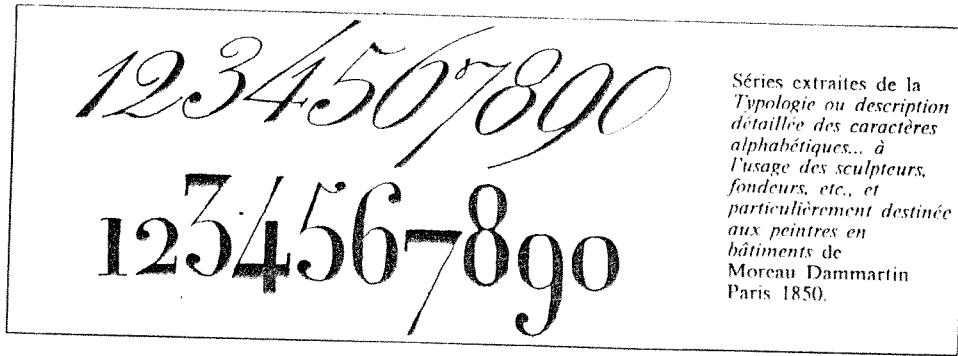 1234567890
1234567890
Séries extraites de la
Typologie ou description
détaillée des caractères
alphabétiques... à
l'usage des sculpteurs,
fondeurs, etc., et
particulièrement destinée
aux peintres en
bâtiments de
Moreau Dammartin
Paris 1850.